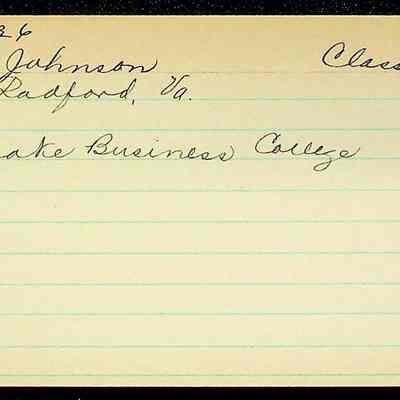 26
Johnson Class
Radford, Va.
oake Business College